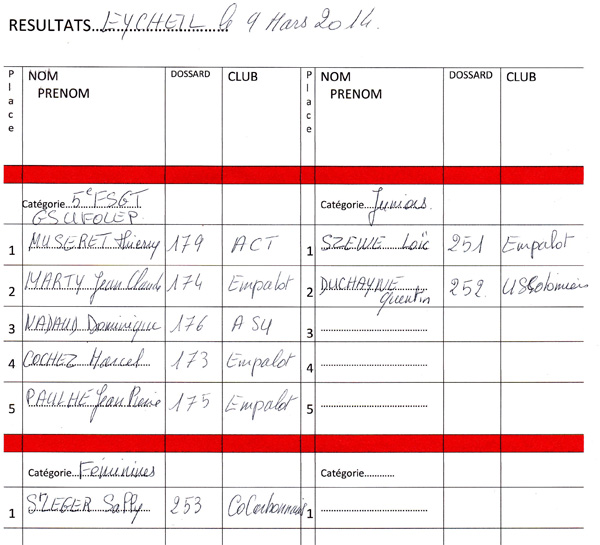 RESULTATS EYCHEIL le 9 Mars 2014.
Place NOM PRENOM DOSSARD CLUB Place NOM PRENOM DOSSARD CLUB
Catégorie 5e FSGT Catégorie Juniors
GS UFOLEP
1 MUSERET Thierry 179 ACT 1 Loïc 251 Empalot
2 MARTY Jean Claude 174 Empalot 2 DUCHAYNE Quentin 252 US Colomiers
3 NADAUD Dominique 176 3
4 COCHEZ Marcel 173 Empalot 4
5 PAULHE Jean Pierre 175 Empalot 5
Catégorie Féminines Catégorie
1 253 1